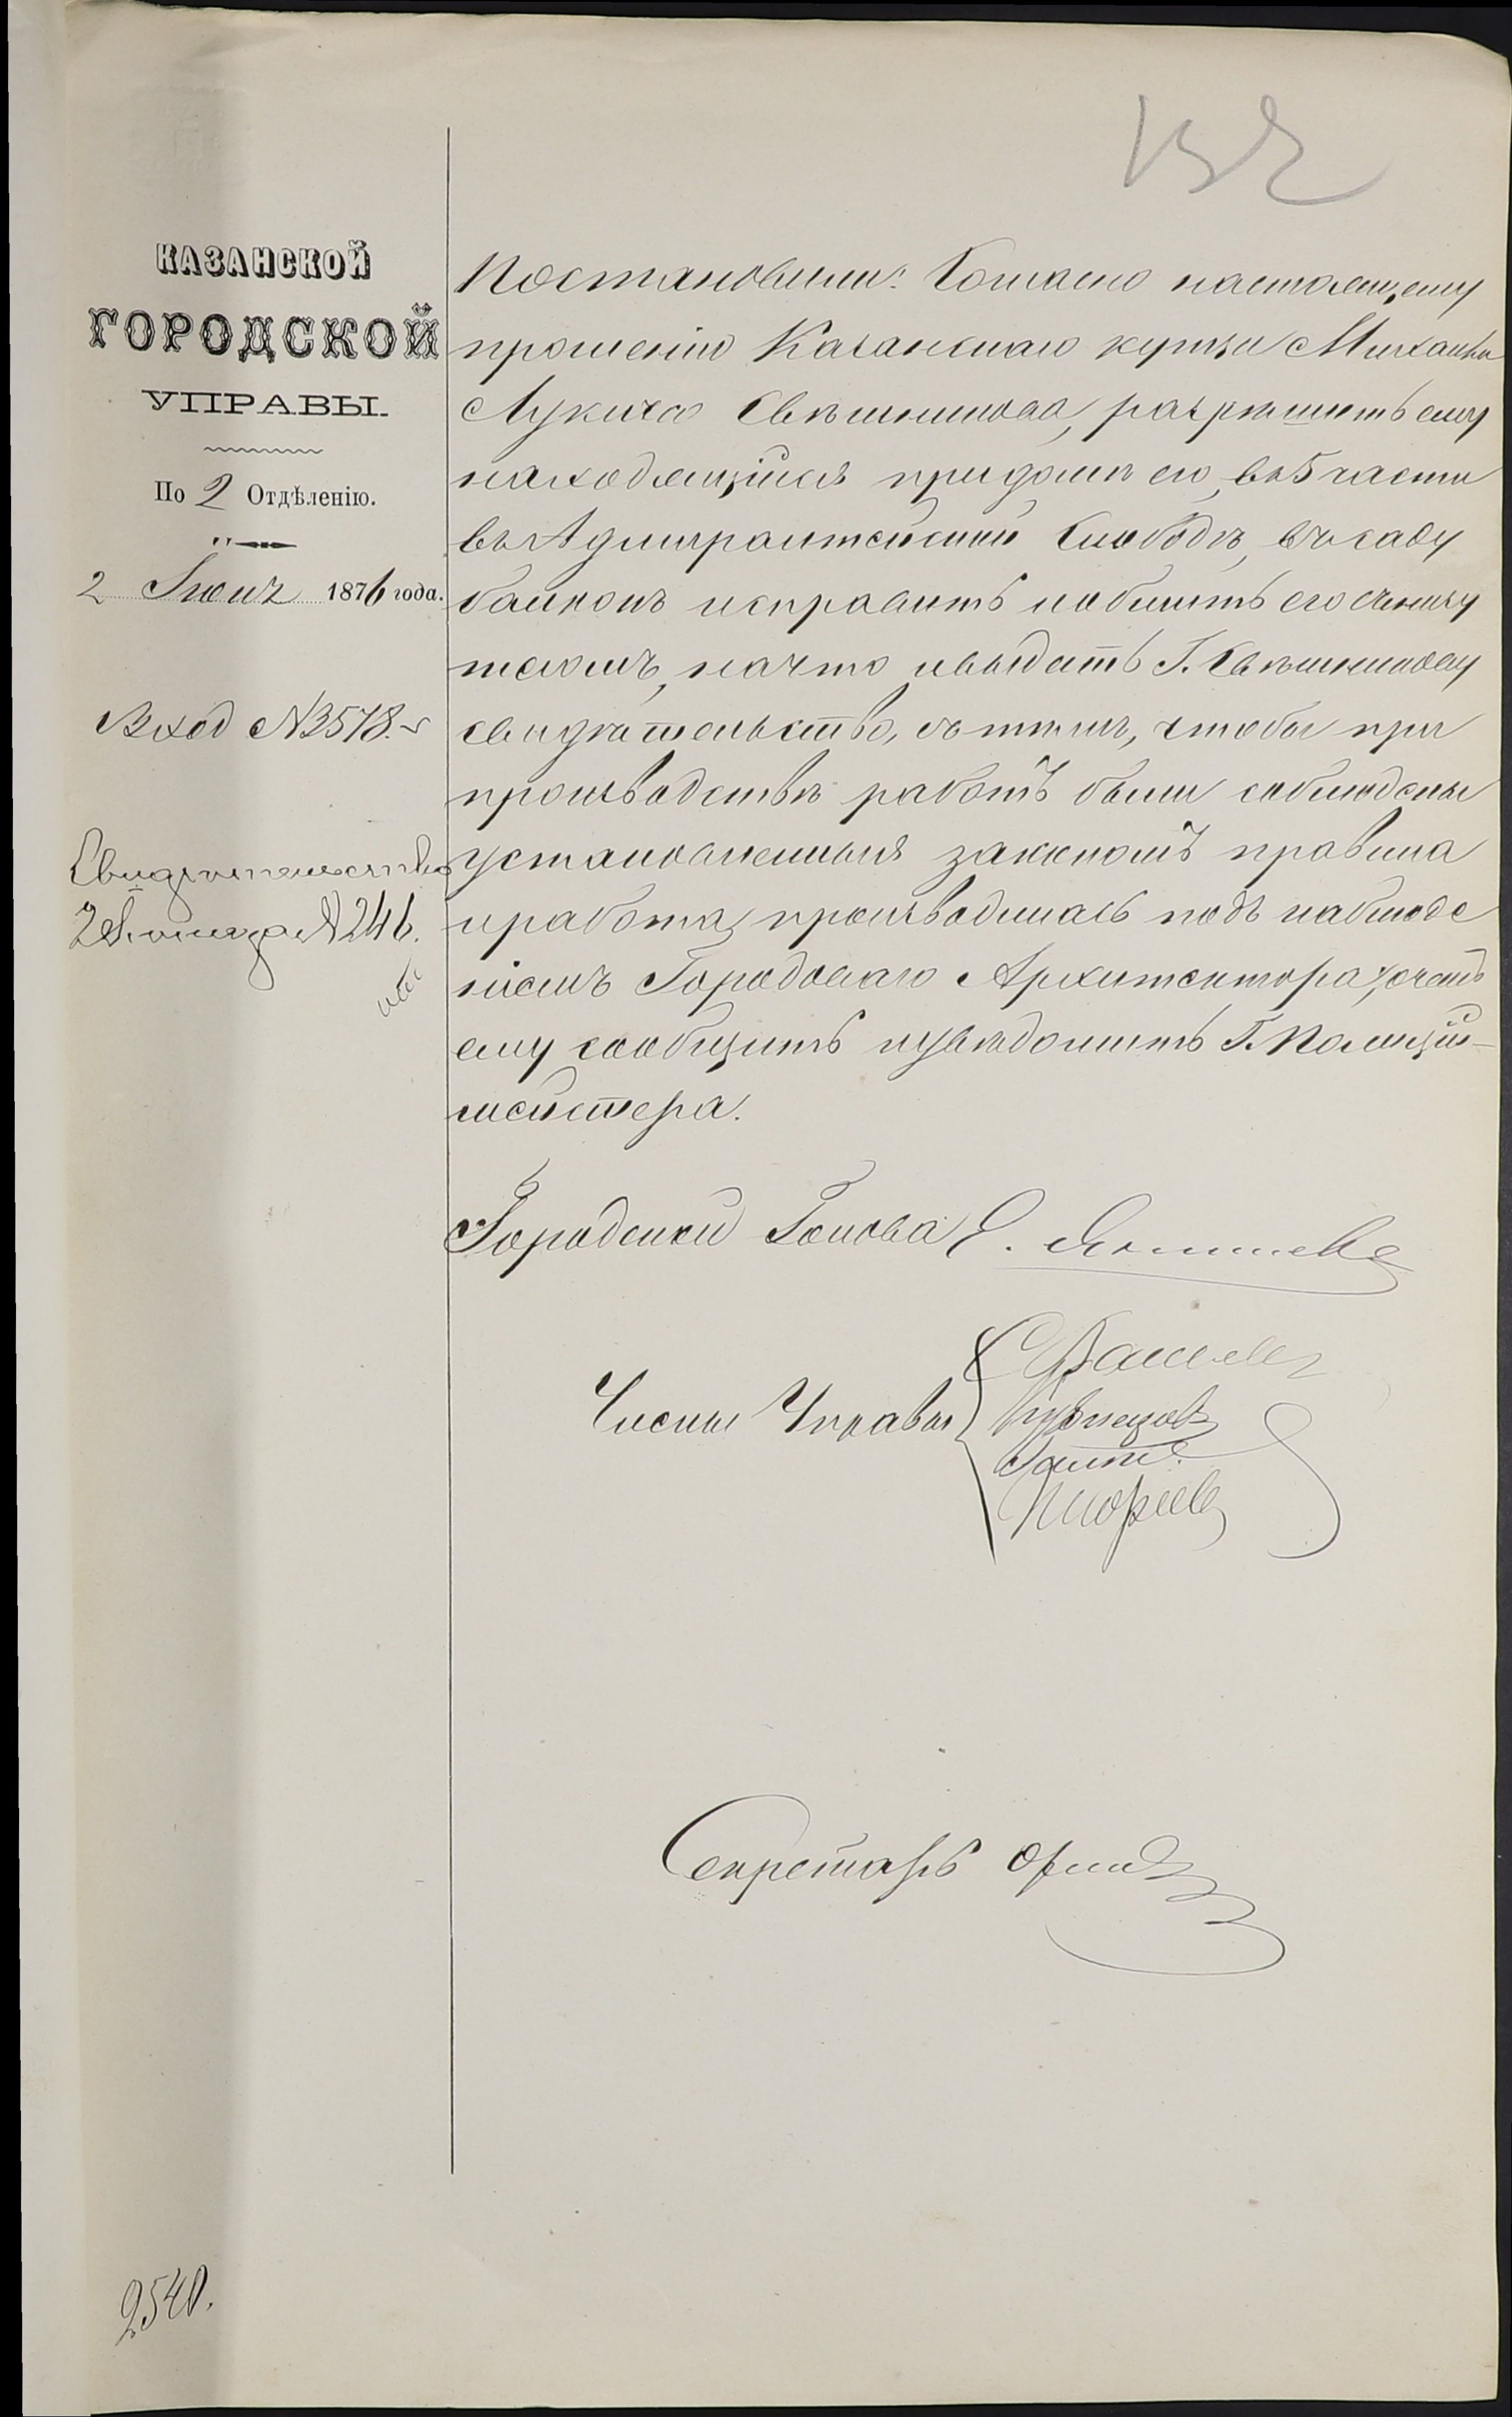 132
КАЗАНСКОЙ
ГОРОДСКОЙ
УПРАВЫ.
По 2 Отдѣленію.
2 Іюня 1876 года.
Вход №3578.
Свидѣтельство
2 Іюня за №246.
Постановили: Согласно настоящему
прошенію Казанскаго купца Михаила
Лукича Свѣшникова, разрѣшить ему
находящійся при домѣ его, въ 5 части
въ Адмиралтейской Слободѣ, въ саду
балконъ исправить и обшить его снизу
тесомъ, на что и выдать Г. Свѣшникову
свидѣтельство, съ тѣмъ, чтобы при
производствѣ работъ были соблюдены
установленныя закономъ правила
и работа производилась подъ наблюде
ніемъ Городоваго Архитектора, о чемъ
ему сообщить и увѣдомить Г. Полицій-
мейстера.
Городской Голова Е.
Члены Управы
Кузнецовъ
Секретарь
2540.